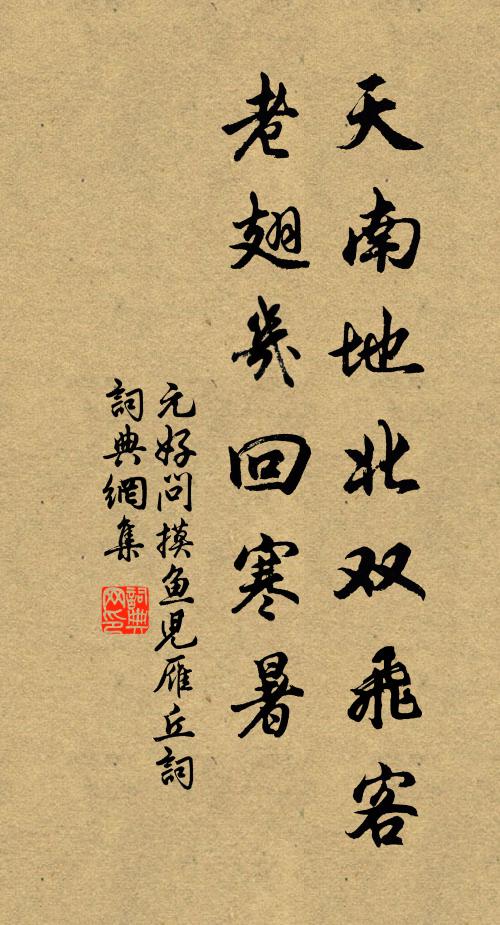 天南地北双飛客
老翅幾回寒暑
元好问摸鱼児雁丘詞
詞典網集
詞典网印